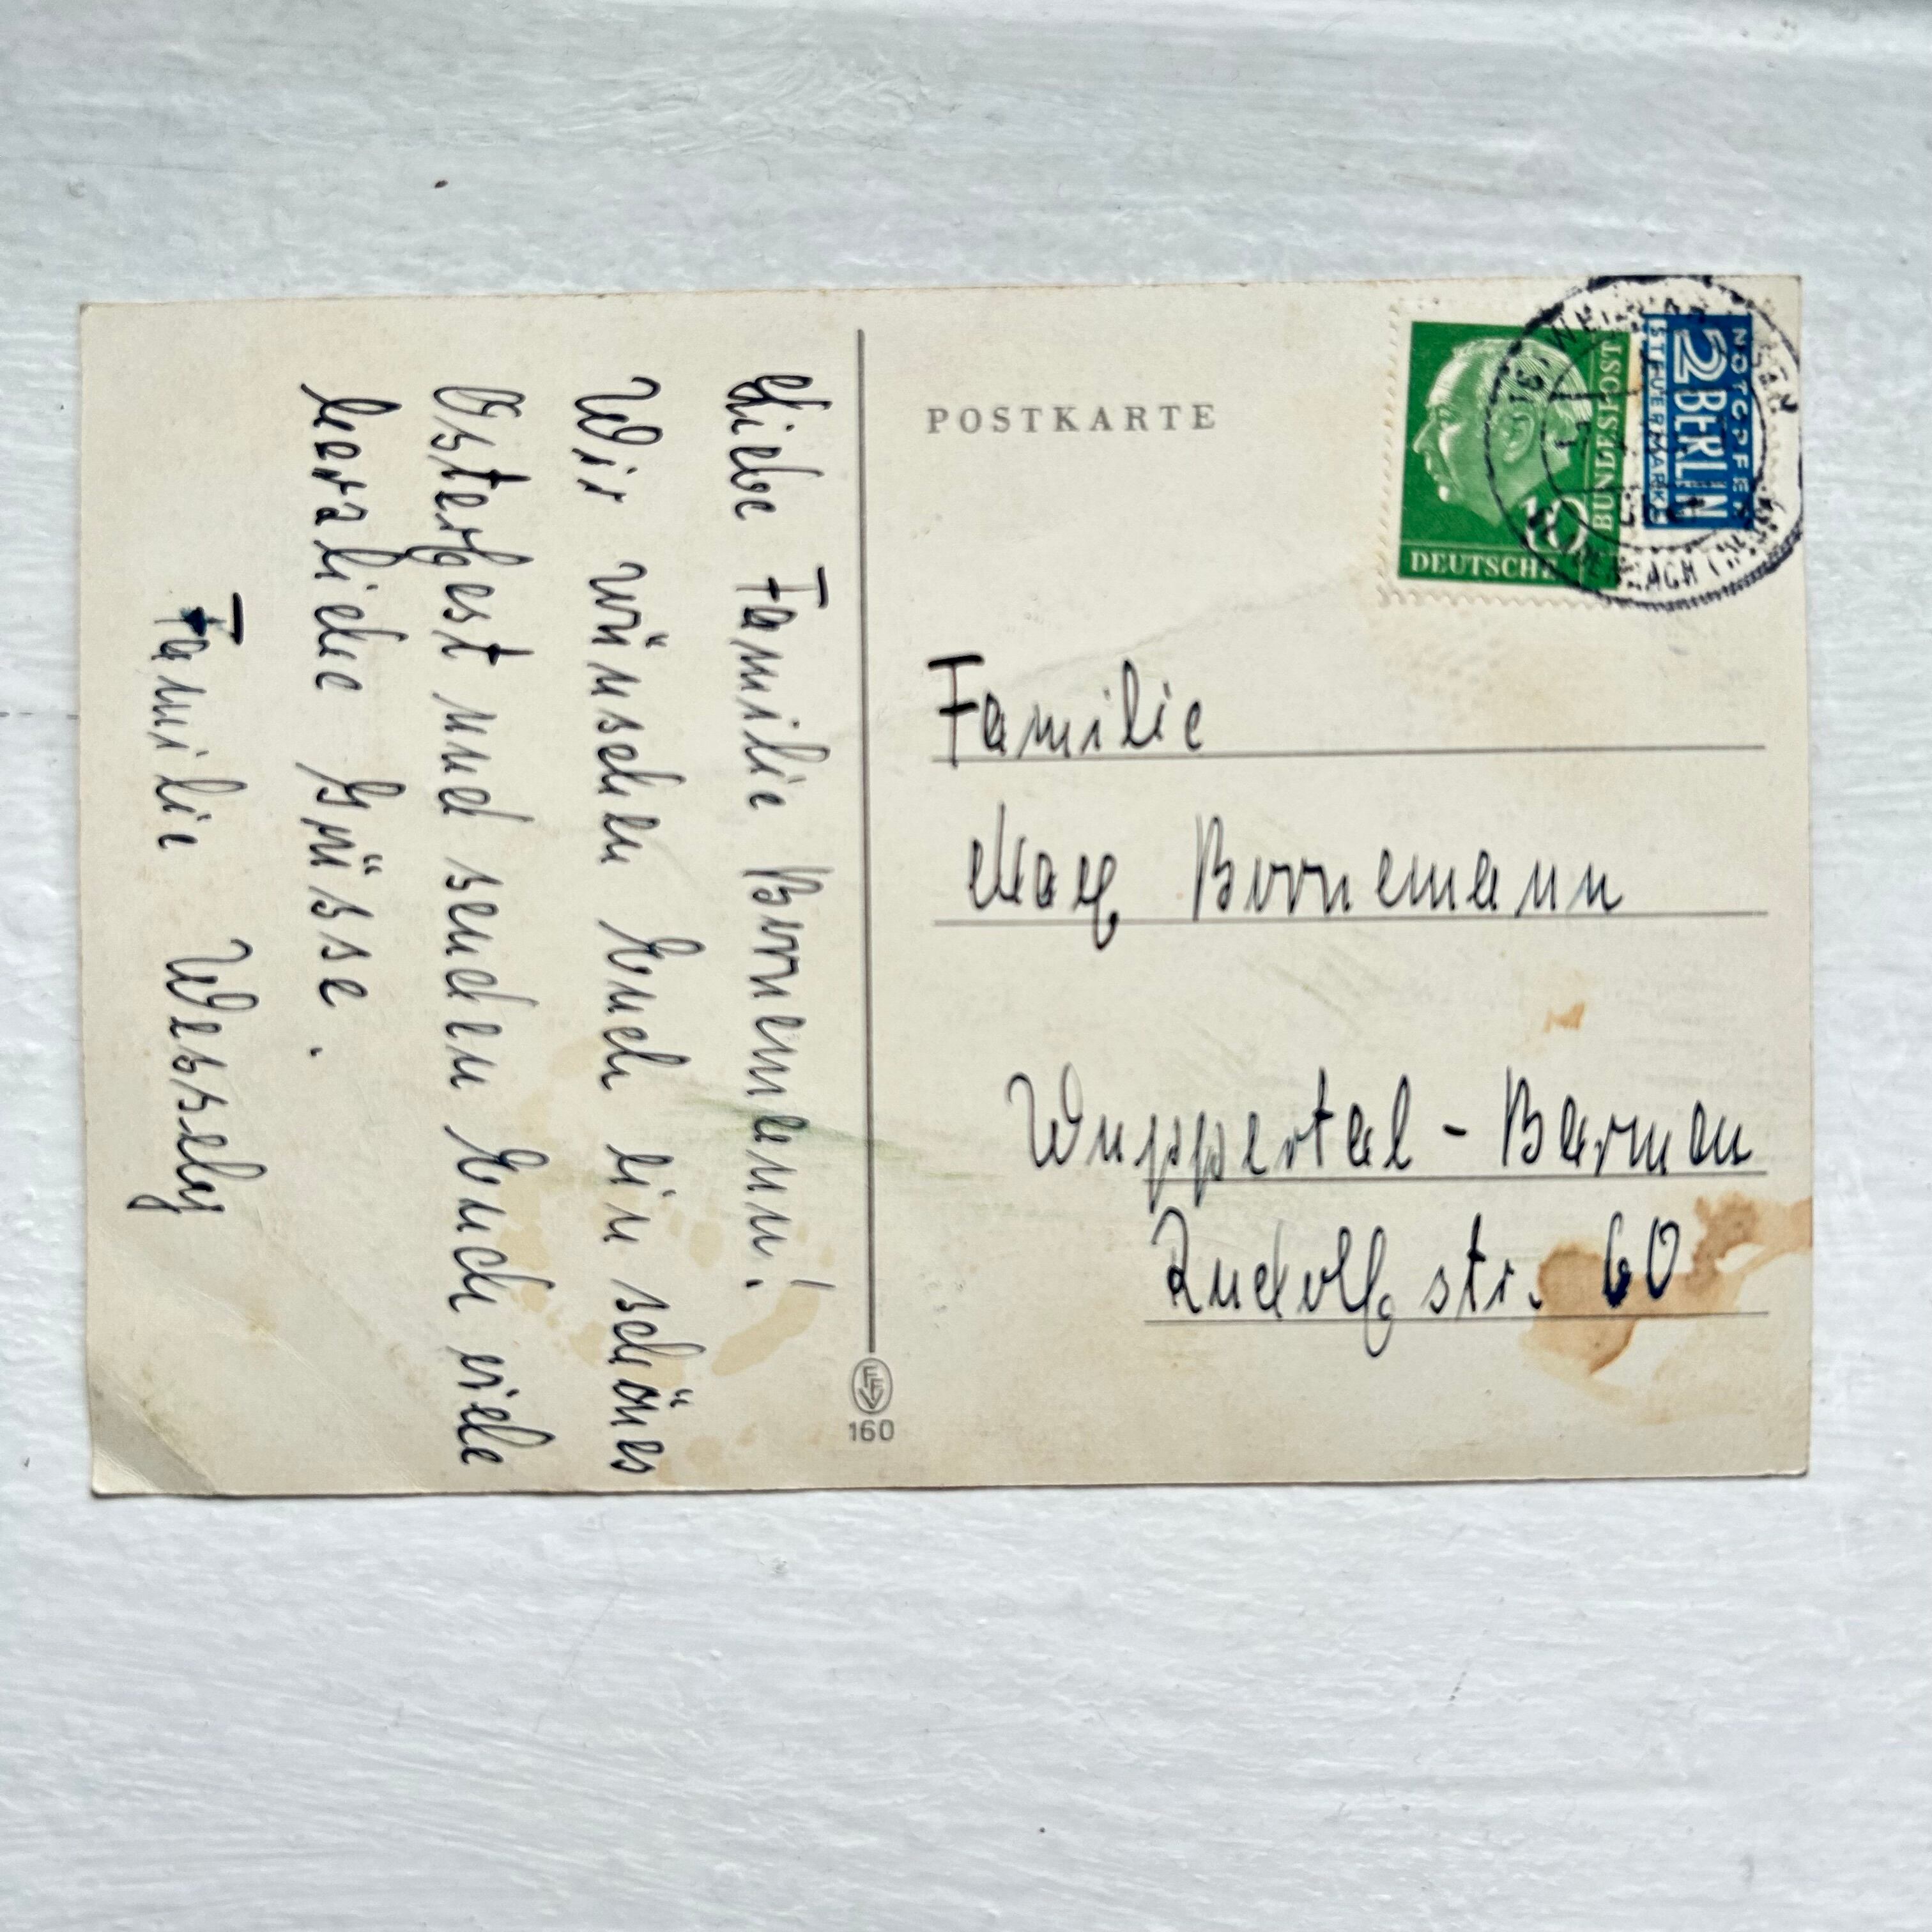 Liebe Familie Bornemann!
Wir wünschen Euch ein schönes
Osterfest und senden Euch viele
herzliche Grüsse.
Familie Wessely
POSTKARTE
DEUTSCHE
BUNDESPOST
10
NOTOPFER
2 BERLIN
STEUERMARKE
Familie
Max Bornemann
Wuppertal - Barmen
Rudolfstr. 60
EFV
160